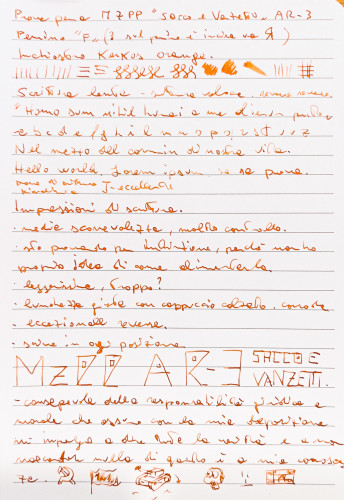 Prova penna MZPP "Sacco e Vanzetti" AR-3
Pennino "F" (3 sul pennino si incide va Я)
Inchiostro Kaskos orange.
Scrittura lenta - scrittura veloce. reverse reverse.
"Homo sum nihil humani a me alienum puto"
a b c d e f g h i l m n o p q r s t u v z
Nel mezzo del cammin di nostra vita.
Hello world. Lorem ipsum se sa prova.
prova di scrittura J-eccellente
Impressioni di scrittura.
- media scorrevolezza, molto controllo.
- sto provando per intuizione, perché non ho
proprio idea di come alimenterla
- leggerissima, troppo?
- lunghezza giusta con cappuccio calzato. comoda
- eccezionale reverse.
- scrive in ogni posizione
MZPP AR-3 SACCO E
VANZETTI.
- consapevole della responsabilità giuridica e
morale che assumo con la mia deposizione
mi impegno a dire tutta la verità e a non
nascondere nulla di quanto è a mia conoscen
za.